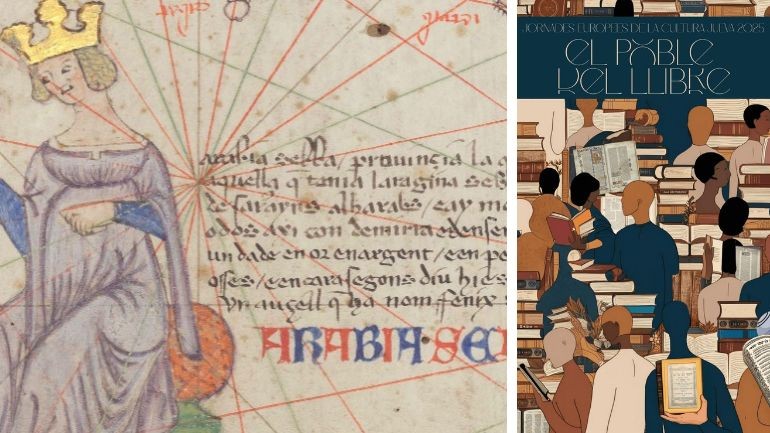 arabia sebba / provincia la q
aquella q tenia laragina seb
de sarayns alharabs / eay mo
odos axi con demirra edensen
undade en or enargent / een pe
osses / e encara segons diu hi es
Vn aucell q ha nom fenix
ARABIA SE
JORNADES EUROPEES DE LA CULTURA JUEVA 2025
EL POBLE
DEL LLIBRE